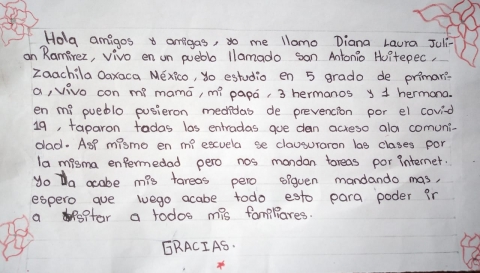 Hola amigos y amigas, yo me llamo Diana Laura Juli-
an Ramirez, vivo en un pueblo llamado san Antonio Huitepec,
Zaachila Oaxaca México, yo estudio en 5 grado de primari-
a, vivo con mi mamá, mi papá, 3 hermanos y 1 hermana.
en mi pueblo pusieron medidas de prevencion por el covid
19, taparon todas las entradas que dan acxeso ala comuni-
dad. Asi mismo en mi escuela se clausuraron las clases por
la misma enfermedad pero nos mandan tareas por internet.
Yo ya acabe mis tareas pero siguen mandando mas,
espero que luego acabe todo esto para poder ir
a visitar a todos mis familiares.
GRACIAS.